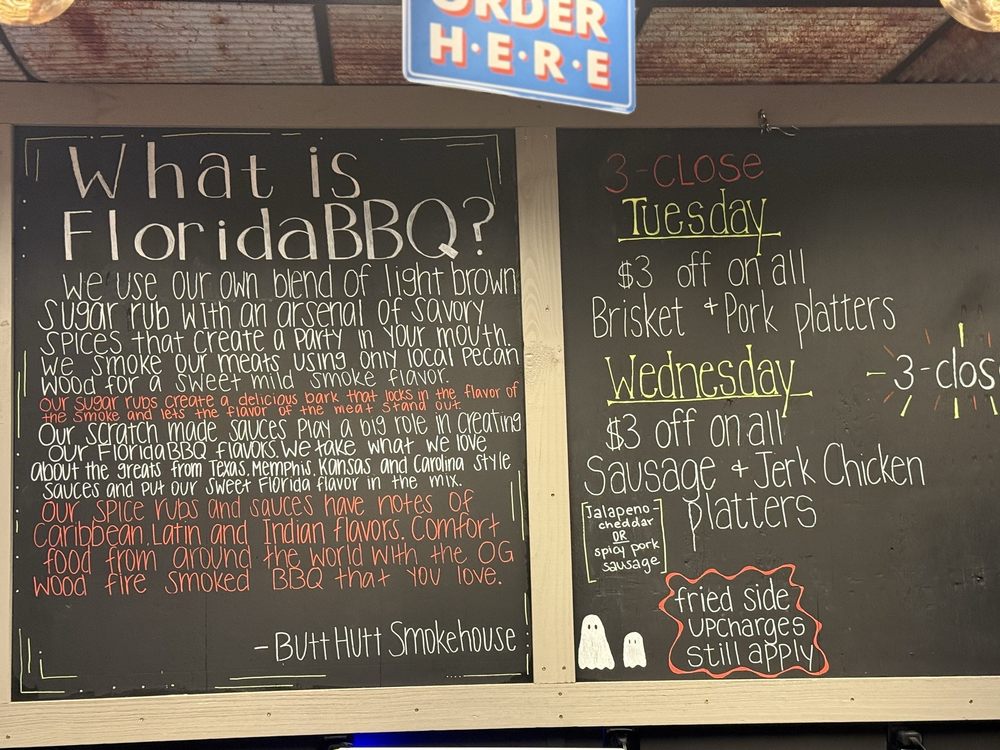 ORDER
H·E·R·E
What is
FloridaBBQ?
we use our own blend of light brown
sugar rub with an arsenal of savory
spices that create a party in your mouth.
We smoke our meats using only local pecan
wood for a sweet mild smoke flavor.
our sugar rubs create a delicious bark that locks in the flavor of
the smoke and lets the flavor of the meat stand out.
Our scratch made sauces play a big role in creating
our FloridaBBQ flavors. We take what we love
about the greats from Texas, Memphis, Kansas and Carolina style
sauces and put our sweet Florida flavor in the mix.
Our spice rubs and sauces have notes of
Caribbean, Latin and Indian flavors. Comfort
food from around the world with the OG
wood fire smoked BBQ that you love.
- Butt Hutt Smokehouse
3-CLOSE
Tuesday
$3 off on all
Brisket + Pork platters
Wednesday
$3 off on all
Sausage + Jerk Chicken
platters
Jalapeno-
cheddar
OR
spicy pork
sausage
fried side
upcharges
still apply
3-clos